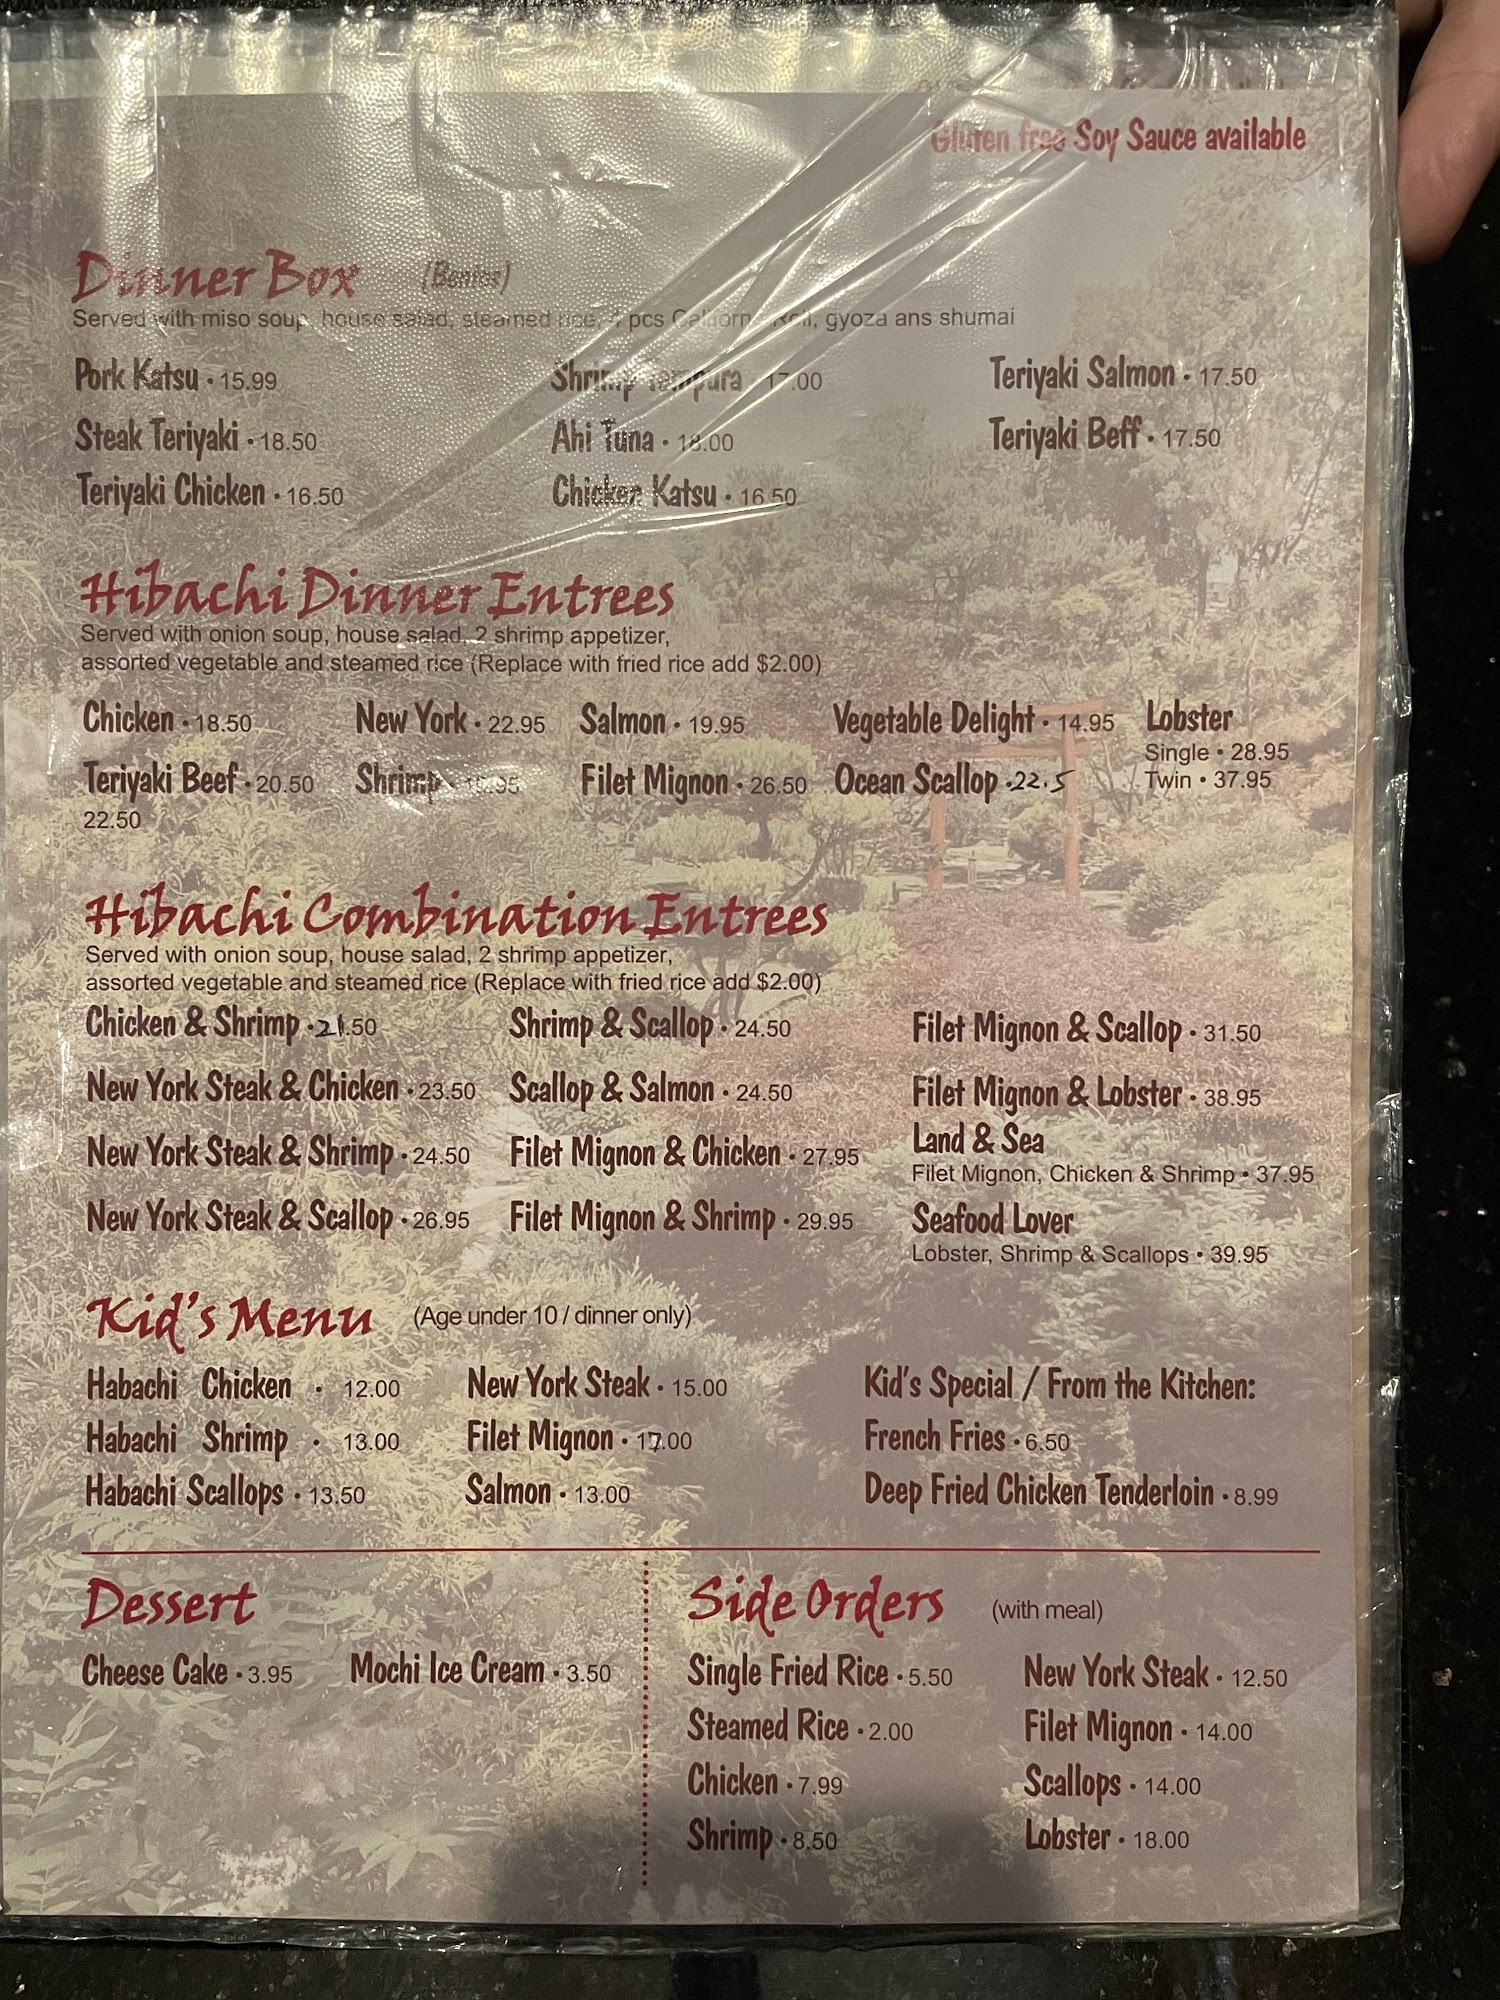 Gluten free Soy Sauce available
Dinner Box (Bentos)
Served with miso soup, house salad, steamed rice, pcs Roll, gyoza ans shumai
Pork Katsu • 15.99 Shrimp Tempura • 17.00 Teriyaki Salmon • 17.50
Steak Teriyaki • 18.50 Ahi Tuna • 18.00 Teriyaki Beff • 17.50
Teriyaki Chicken • 16.50 Chicken Katsu • 16.50
Hibachi Dinner Entrees
Served with onion soup, house salad, 2 shrimp appetizer,
assorted vegetable and steamed rice (Replace with fried rice add $2.00)
Chicken • 18.50 New York • 22.95 Salmon • 19.95 Vegetable Delight • 14.95 Lobster
Single • 28.95
Teriyaki Beef • 20.50 Shrimp • Filet Mignon • 26.50 Ocean Scallop • 22.5 Twin • 37.95
22.50
Hibachi Combination Entrees
Served with onion soup, house salad, 2 shrimp appetizer,
assorted vegetable and steamed rice (Replace with fried rice add $2.00)
Chicken & Shrimp • 21.50 Shrimp & Scallop • 24.50 Filet Mignon & Scallop • 31.50
New York Steak & Chicken • 23.50 Scallop & Salmon • 24.50 Filet Mignon & Lobster • 38.95
Land & Sea
New York Steak & Shrimp • 24.50 Filet Mignon & Chicken • 27.95 Filet Mignon, Chicken & Shrimp • 37.95
New York Steak & Scallop • 26.95 Filet Mignon & Shrimp • 29.95 Seafood Lover
Lobster, Shrimp & Scallops • 39.95
Kid's Menu (Age under 10 / dinner only)
Habachi Chicken • 12.00 New York Steak • 15.00 Kid's Special / From the Kitchen:
Habachi Shrimp • 13.00 Filet Mignon • 17.00 French Fries • 6.50
Habachi Scallops • 13.50 Salmon • 13.00 Deep Fried Chicken Tenderloin • 8.99
Dessert
Cheese Cake • 3.95 Mochi Ice Cream • 3.50
Side Orders (with meal)
Single Fried Rice • 5.50 New York Steak • 12.50
Steamed Rice • 2.00 Filet Mignon • 14.00
Chicken • 7.99 Scallops • 14.00
Shrimp • 8.50 Lobster • 18.00